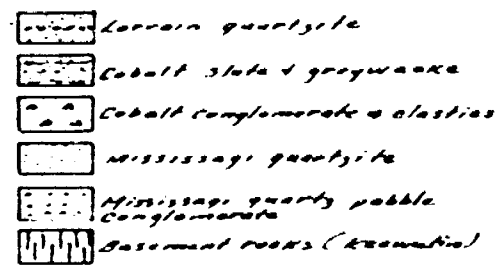 Lorrain quartzite
Cobalt slate & greywacke
Cobalt conglomerate & clastics
Mississagi quartzite
Mississagi quartz pebble
conglomerate
Basement rocks (Keewatin)